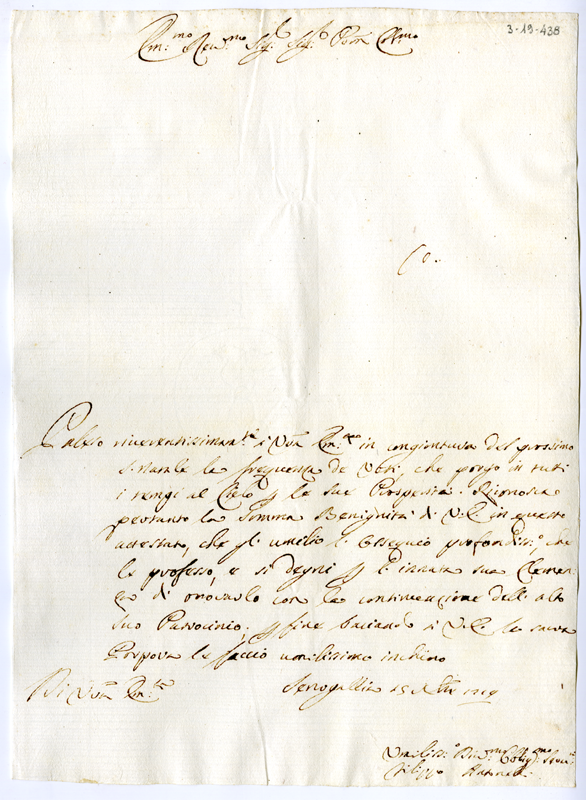 3-19-438
Em:mo Rev:mo Sig:r Sig:r Pron Col:mo
Paleso riverentissimam:te a Vra Em:za in congiontura del prossimo
S. Natale la frequenza de Voti, che porgo in tutti
i tempi al Cielo p le sue Prosperità. Riconosca
pertanto la somma Benignità di V.E. in questo
attestato, che gl' umilio l'ossequio profondiss:o che
le professo, e si degni p l'innata sua Clemen-
za di onorarlo con la continuazione dell' alto
suo Patrocinio; p fine baciando a V.E. la sacra
Porpora le faccio umilissimo inchino
Di Vra Em:za Senogallia 15 Xbre
Umiliss:o Div:mo Oblig:mo Serv:e
Filippo Antonelli